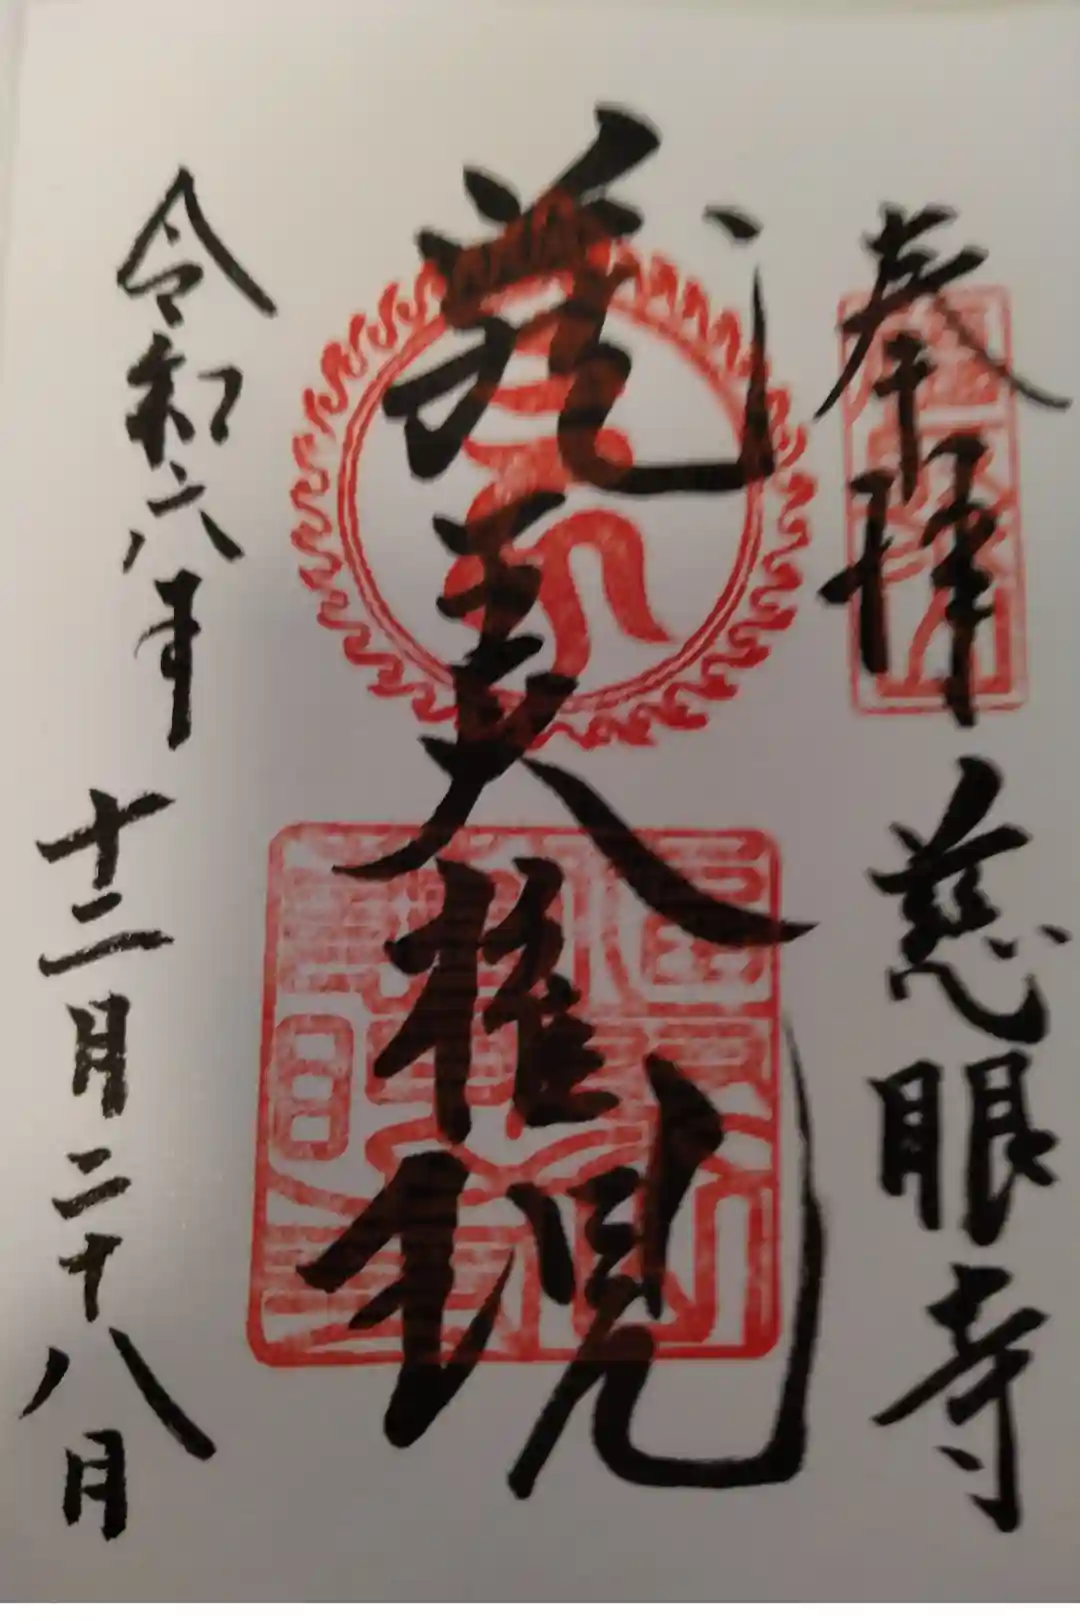 奉拝 慈眼寺
蔵王大権現
令和六年十二月二十八日